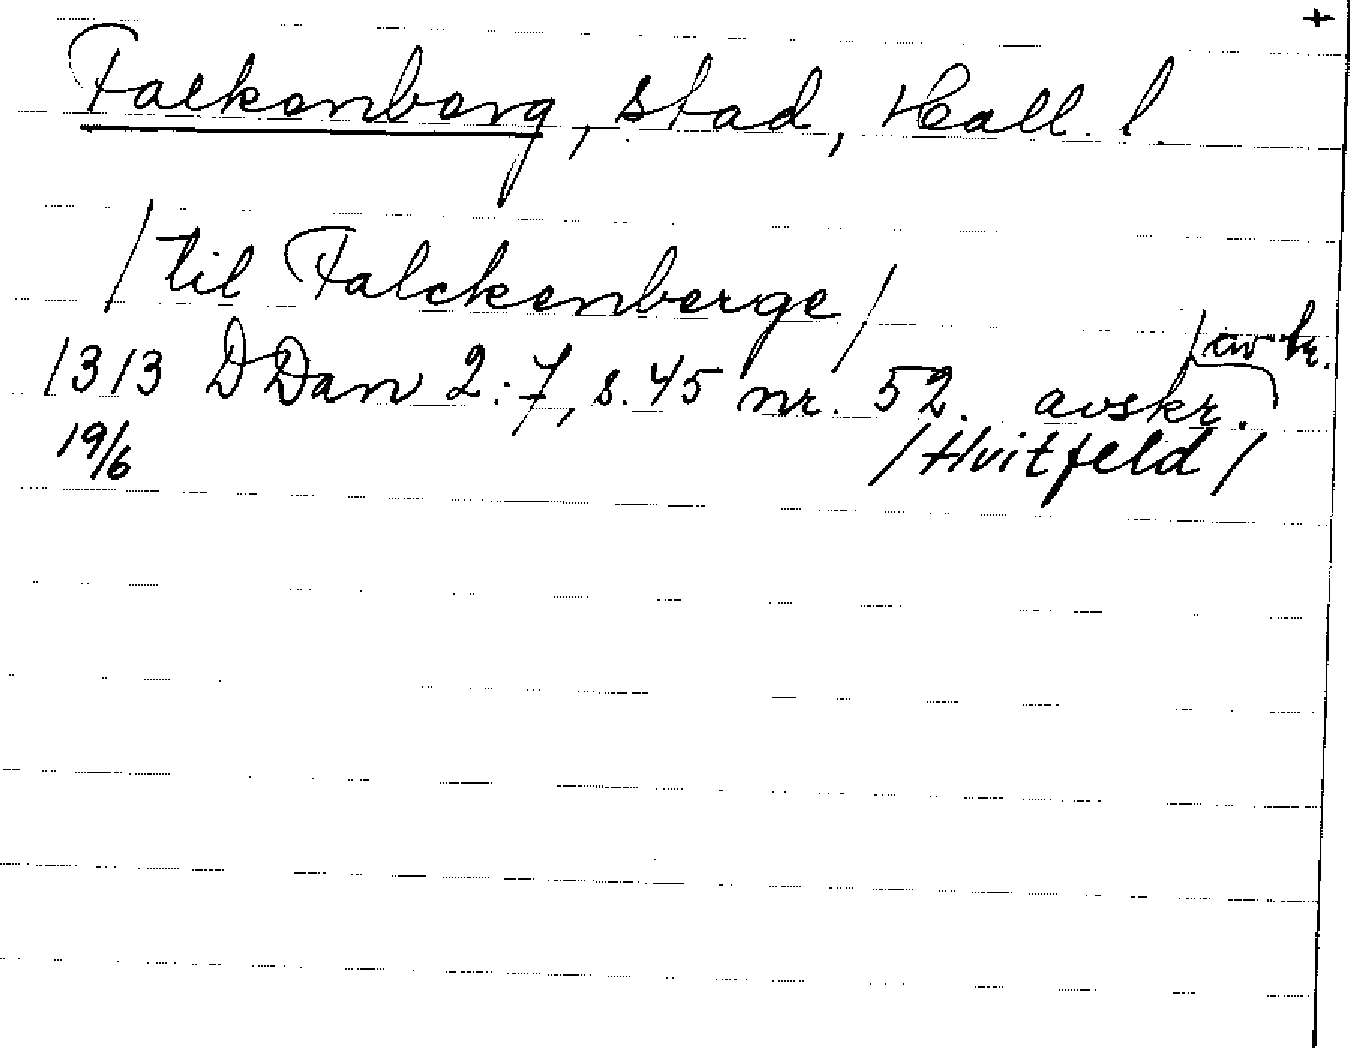 +
Falkenberg, stad, Hall. l.
/til Falckenberge/
1313 DDan 2:7, s. 45 nr. 52. avskr.
19/6 /Hvitfeld/